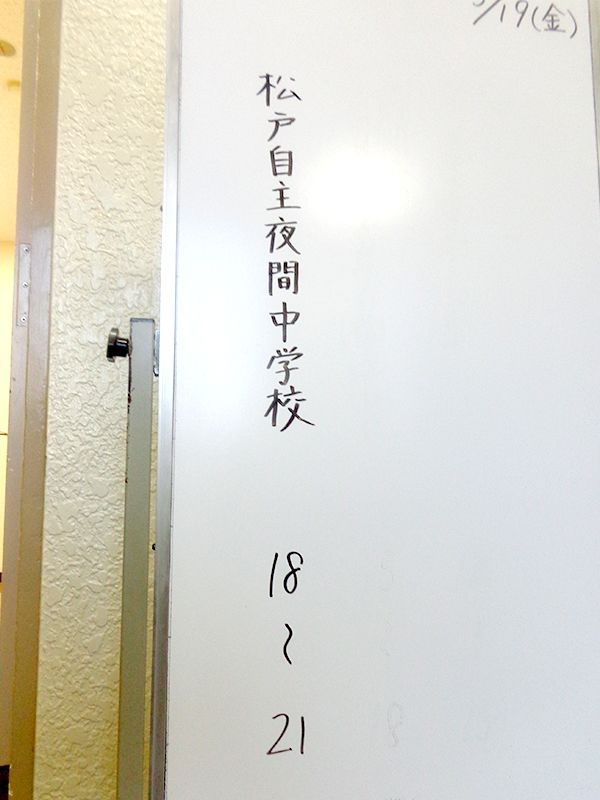 /19(金)
松戸自主夜間中学校
18
〜
21